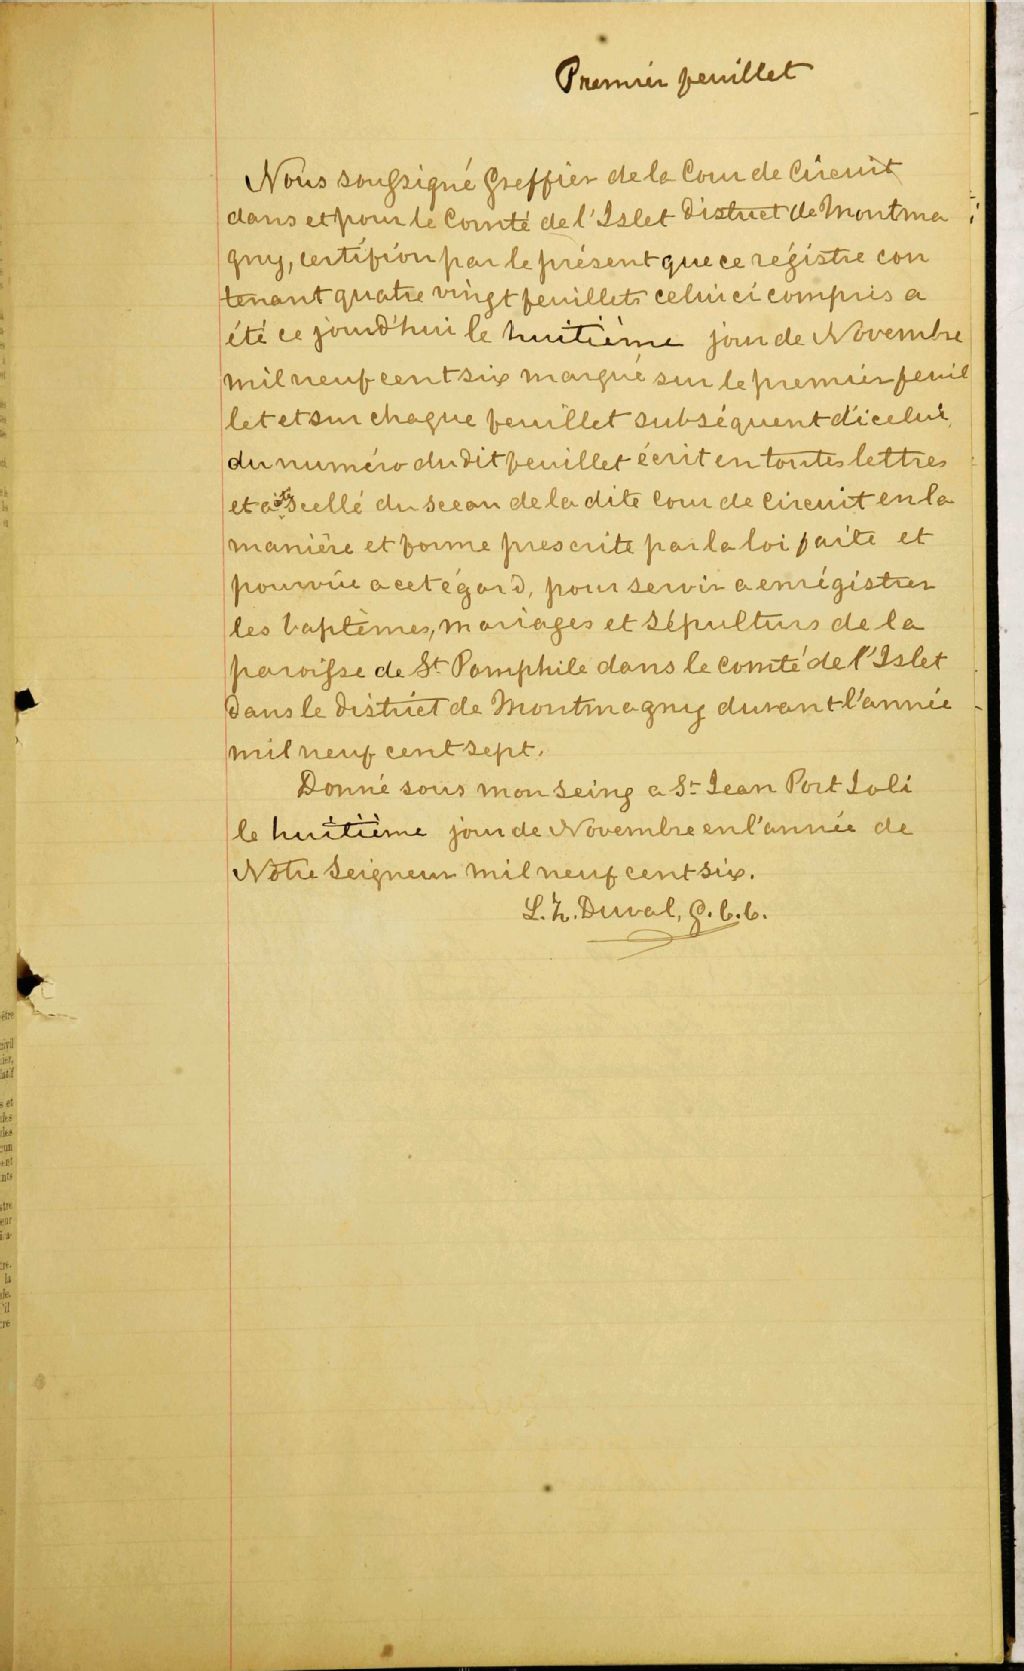 Premier feuillet
Nous soussigné Greffier de la Cour de Circuit
dans et pour le Comté de l'Islet District de Montma
gny, certifion par le présent que ce régistre con
tenant quatre vingt feuillets celui ci compris a
été ce jourd'hui le huitième jour de Novembre
mil neuf cent six marqué sur le premier feuil
let et sur chaque feuillet subséquent d'icelui
du numéro du dit feuillet écrit en toutes lettres
et a été scellé du sceau de la dite Cour de Circuit en la
manière et forme prescrite par la loi faite et
pourvue a cet égard, pour servir a enrégistrer
les baptêmes, mariages et Sépulturs de la
paroisse de St. Pamphile dans le comté de l'Islet
dans le District de Montmagny durant l'année
mil neuf cent sept.
Donné sous mon seing a St. Jean Port Joli
le huitième jour de Novembre en l'année de
Notre Seigneur mil neuf cent six.
L. Z. Duval, G. C. C.